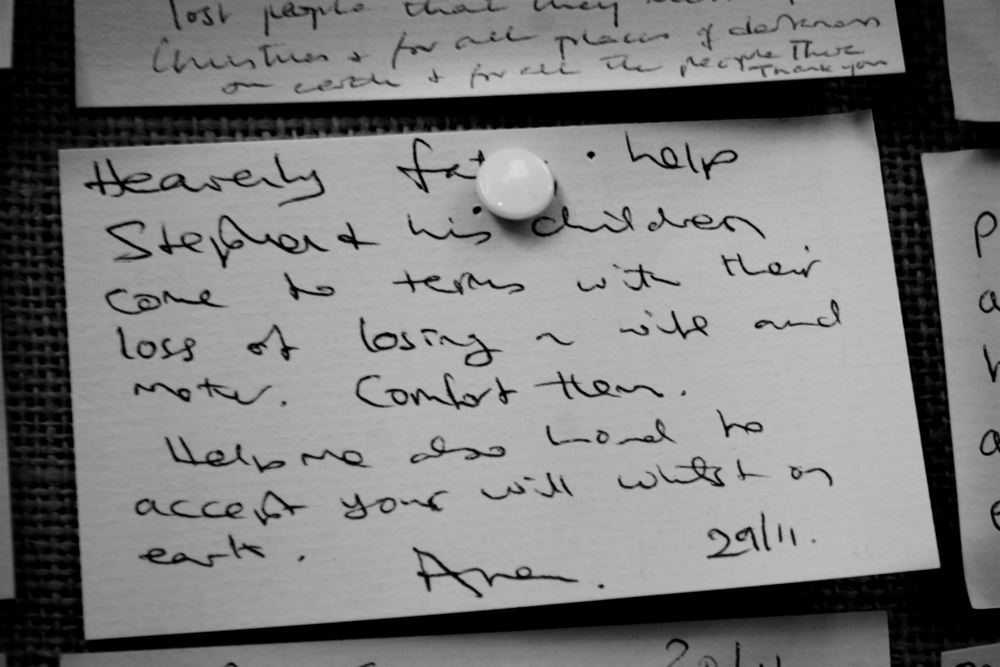 lost people that they
Christmas & for all places of darkness
on earth & for all the people there
Thank you
Heavenly fat . help
Stephen & his children
come to terms with their
loss of losing a wife and
mother. Comfort them.
Help me also Lord to
accept your will whilst on
earth.
Amen. 29/11.